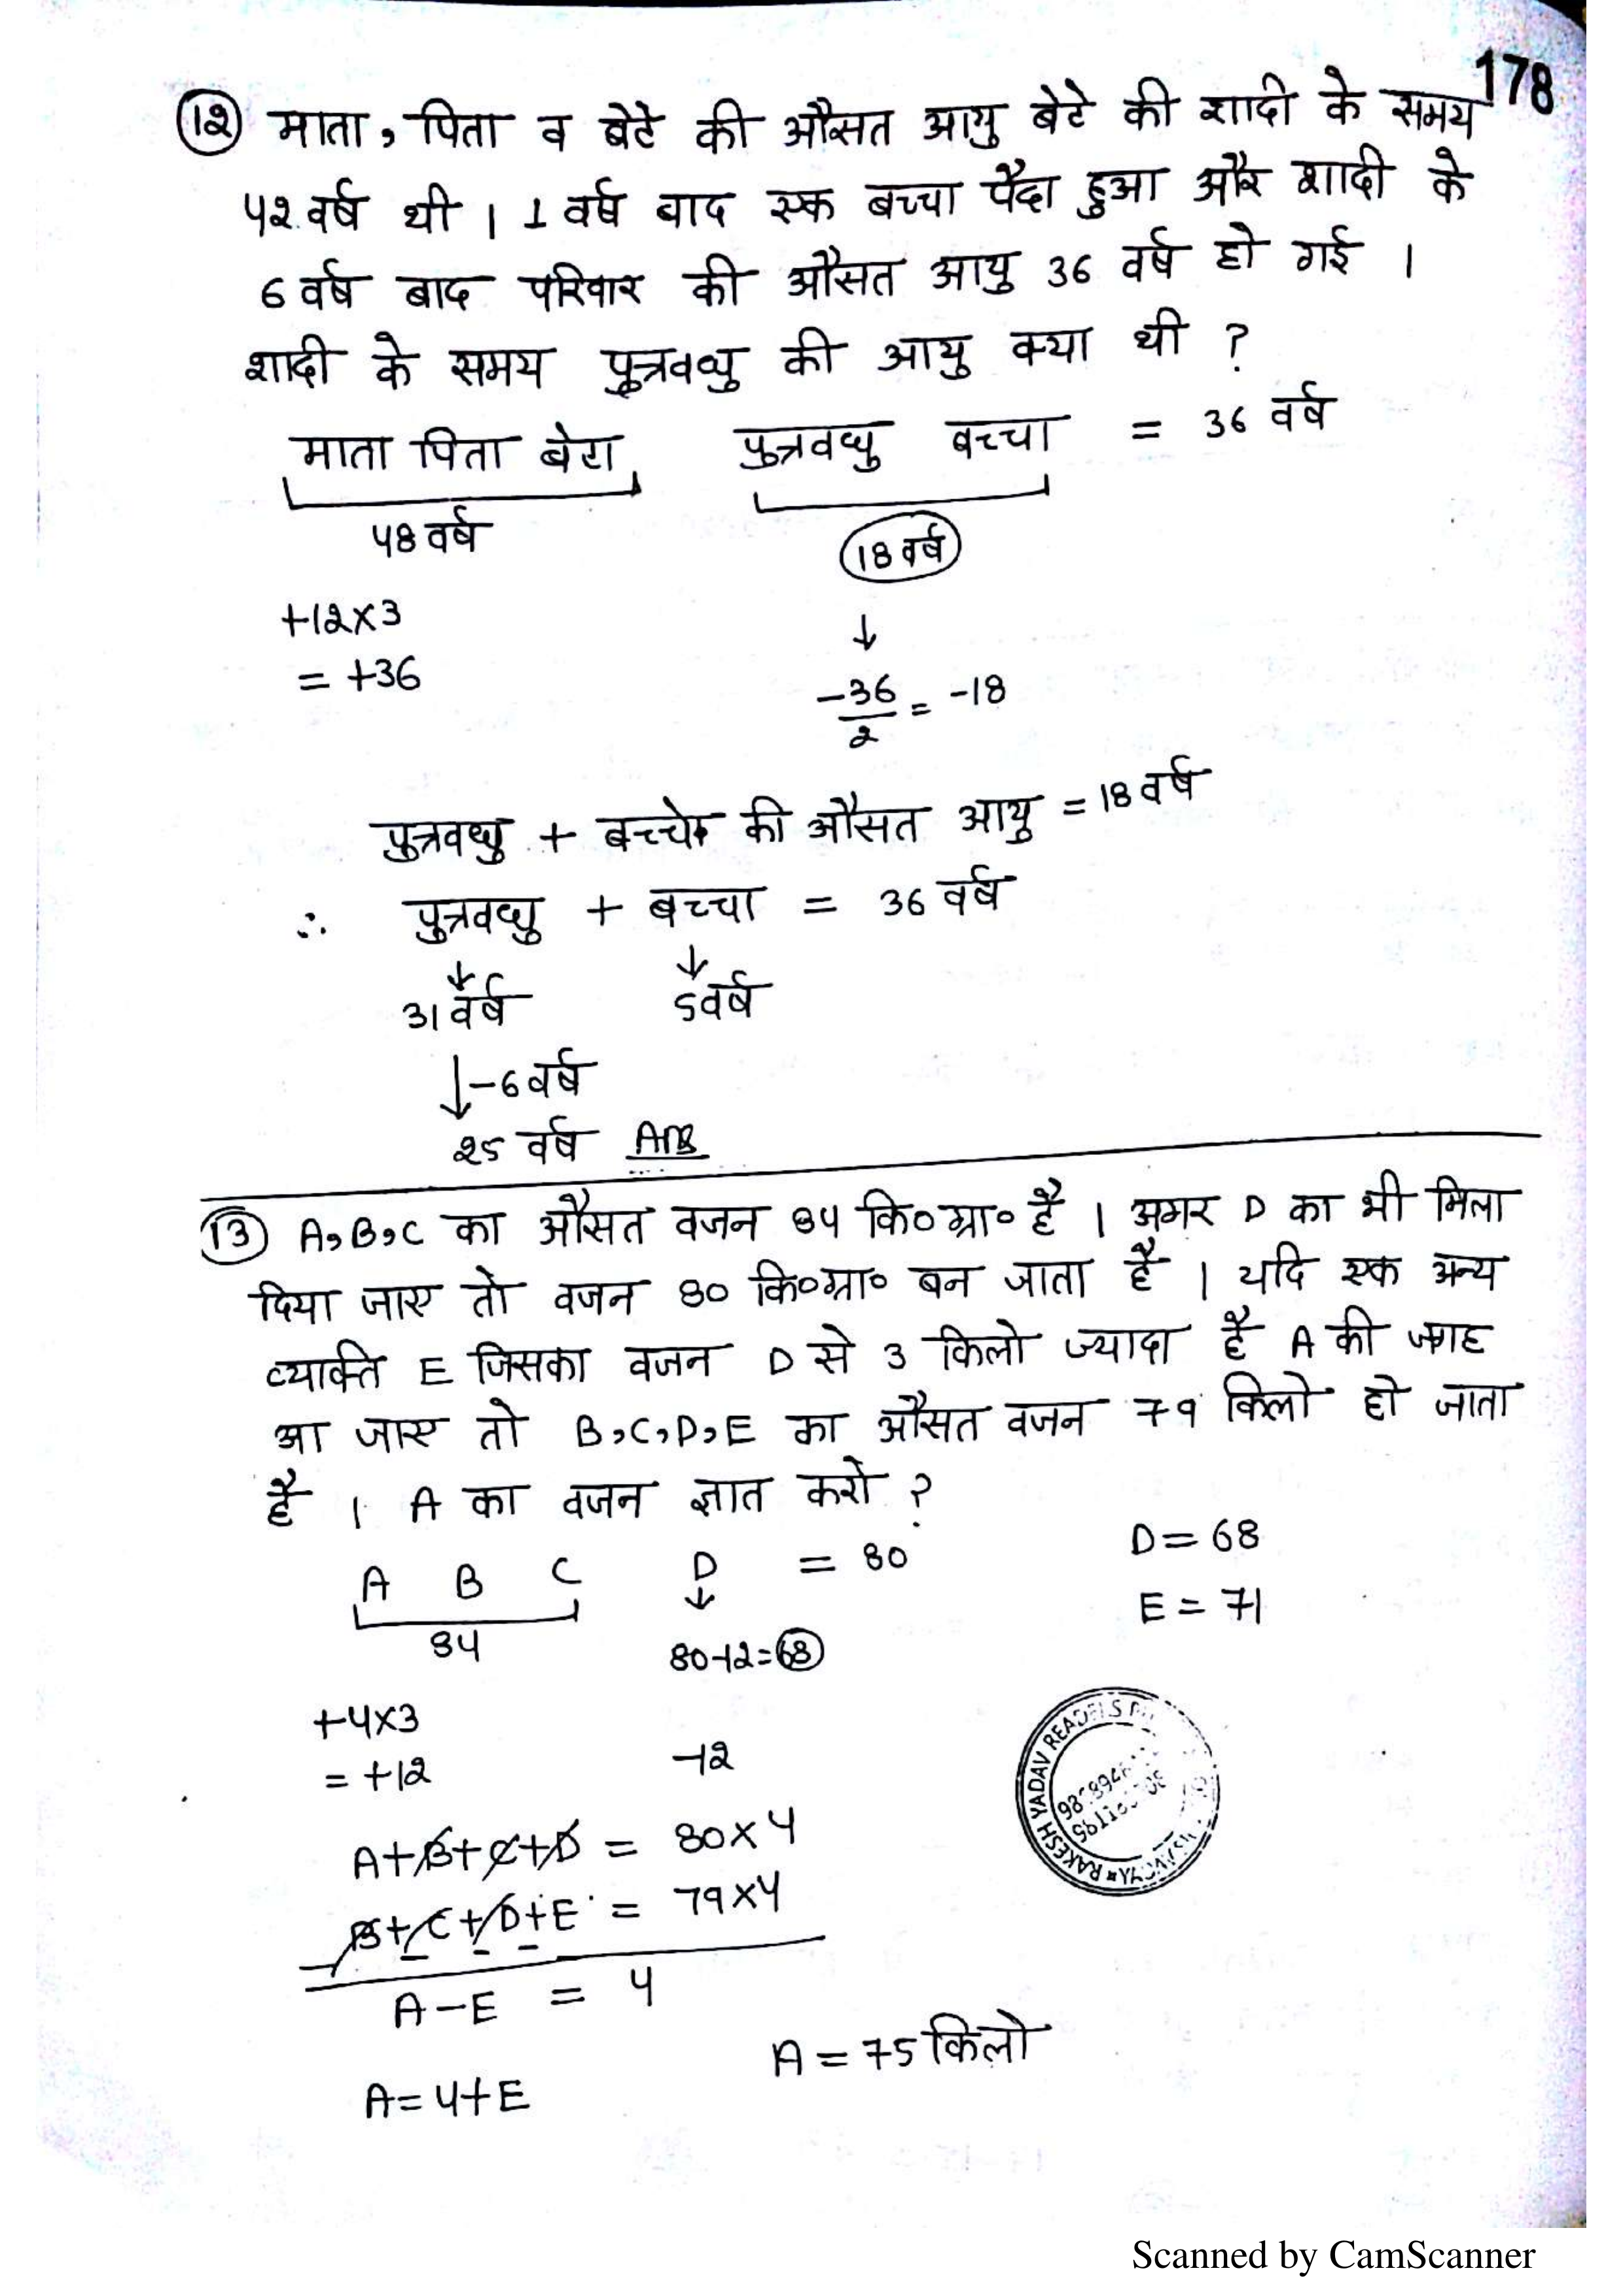 178
12 माता, पिता व बेटे की औसत आयु बेटे की शादी के समय
42 वर्ष थी । 1 वर्ष बाद एक बच्चा पैदा हुआ और शादी के
6 वर्ष बाद परिवार की औसत आयु 36 वर्ष हो गई ।
शादी के समय पुत्रवधु की आयु क्या थी ?
माता पिता बेटा, पुत्रवधु बच्चा = 36 वर्ष
48 वर्ष 18 वर्ष
+12×3 ↓
= +36 -36/2 = -18
पुत्रवधु + बच्चे की औसत आयु = 18 वर्ष
∴ पुत्रवधु + बच्चा = 36 वर्ष
↓ ↓
31 वर्ष 5 वर्ष
↓ -6 वर्ष
25 वर्ष Ans
13 A,B,C का औसत वजन 84 कि०ग्रा० है । अगर D का भी मिला
दिया जाए तो वजन 80 कि०ग्रा० बन जाता है । यदि एक अन्य
व्यक्ति E जिसका वजन D से 3 किलो ज्यादा है A की जगह
आ जाए तो B,C,D,E का औसत वजन 79 किलो हो जाता
है । A का वजन ज्ञात करो ?
A B C D = 80 D = 68
↓ E = 71
84 80-12=68
+4×3
= +12 -12
A+B+C+D = 80×4
B+C+D+E = 79×4
A-E = 4
A = 75 किलो
A = 4+E
RAKESH YADAV READERS
Scanned by CamScanner